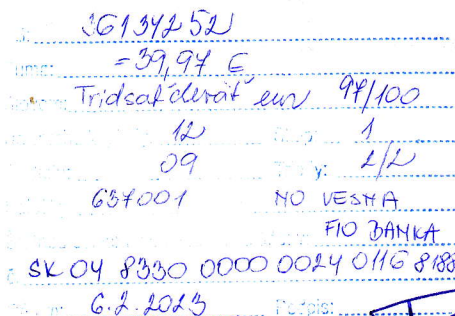 36134252
=39,97 €
Tridsaťdeväť eur 97/100
12 1
09 2/2
637001 NO VESNA
FIO BANKA
SK 04 8330 0000 0024 0116 8188
6.2.2023 Podpis: